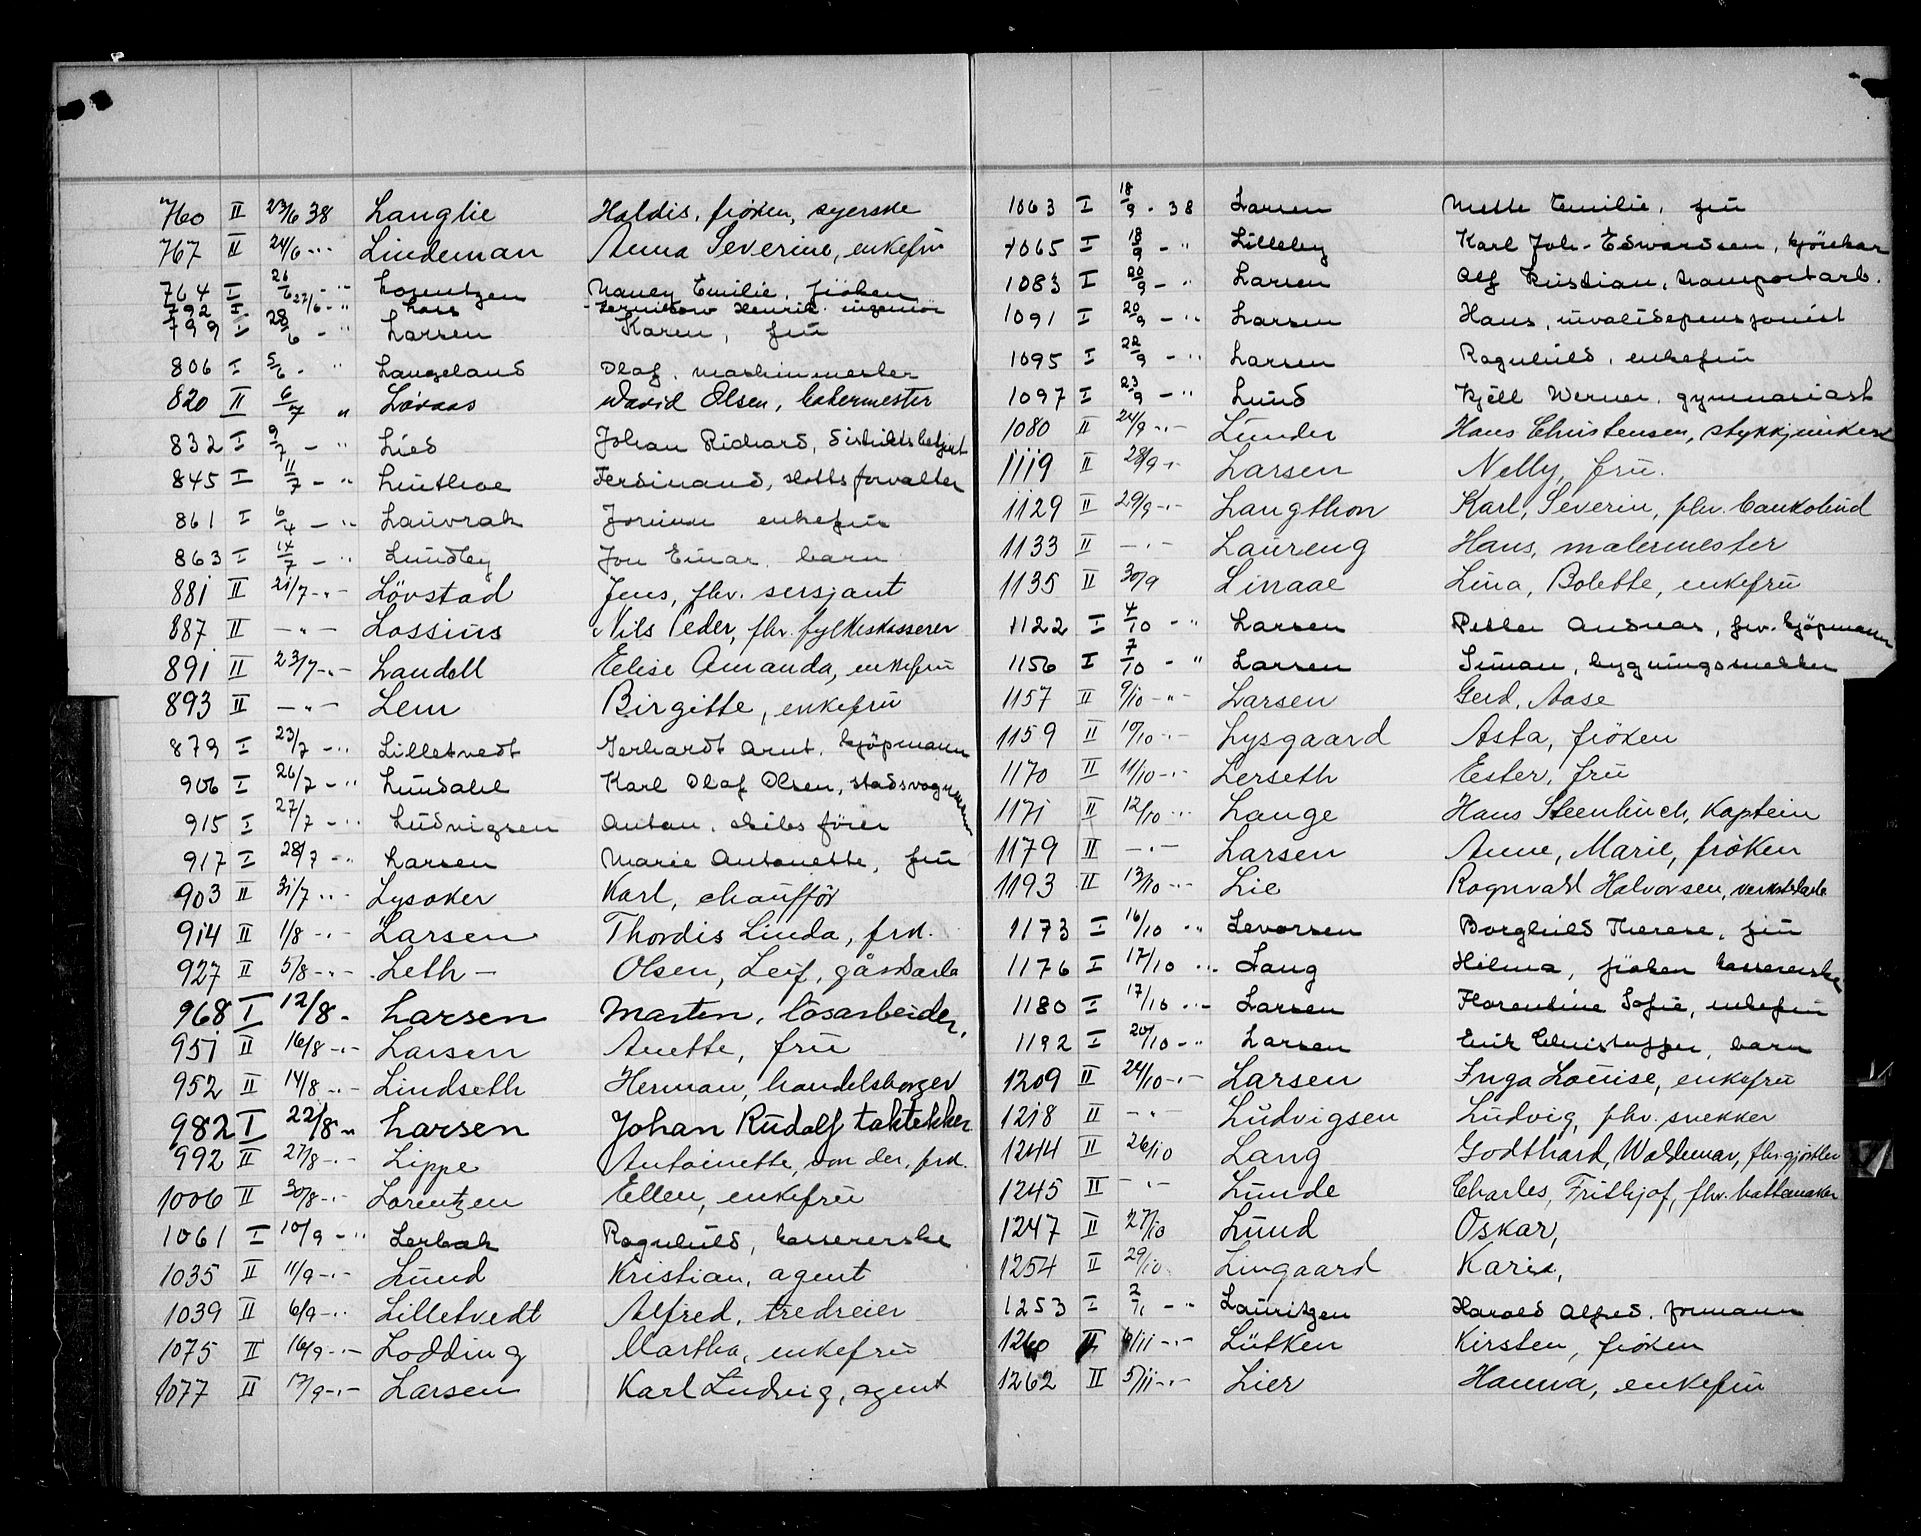 760 II 23/6 38 Langlie Haldis, frøken, syerske
767 II 24/6 -"- Lindeman Anna Severine, enkefru
764 I 26/6 -" Lorentzen Nancy Emilie, frøken
792 I 27/6 -" Henrik ingeniør
799 I 28/6 -" Larsen Karen, fru
806 I 5/6 - " Langeland Olaf, maskinmester
820 II 6/7 " Lövaas David Olsen, bakermester
832 I 9/7 - " Lied Johan Richard, distriktsbetjent
845 I 11/7 - " Linthoe Ferdinand, slottsforvalter
861 I 6/4 - " Lauvrak Jorunn enkefru
863 I 14/7 - " Lundby Jon Einar, barn
881 II 21/7 -"- Lövstad Jens, fhv. sersjant
887 II -"- Lossius Nils Peder, fhv. fylkeskasserer
891 II 23/7 -"- Landell Elise Amanda, enkefru
893 II -"- Lem Birgitte, enkefru
879 I 23/7 -" Lilletvedt Gerhardt Arnt, kjöpmann
906 I 26/7 -" Lundahl Karl Olaf Olsen, stadsvognmann
915 I 27/7 -" Ludvigsen Anton, skibsförer
917 I 28/7 -" Larsen Marie Antonette, fru
903 II 31/7 -"- Lysaker Karl, chaufför
914 II 1/8 -"- Larsen Thordis Linda, frk.
927 II 5/8 -"- Leth - Olsen, Leif, gårdsarb
968 I 12/8 - Larsen Marten, løsarbeider,
951 II 16/8 -"- Larsen Anette, fru
952 II 14/8 -"- Lindseth Herman, handelsborger
982 I 22/8 -" Larsen Johan Rudolf taktekker
992 II 27/8 -"- Lippe Antoinette, von der, frk.
1006 II 30/8 -"- Lorentzen Ellen, enkefru
1061 I 10/9 -" Lerbak Ragnhild, kassererske
1035 II 11/9 -"- Lund Kristian, agent
1039 II 6/9 -"- Lilletvedt Alfred, tredreier
1075 II 16/9 -"- Lodding Martha, enkefru
1077 II 17/9 -"- Larsen Karl Ludvig, agent
1063 I 18/9 - 38 Larsen Mette Emilie, fru
1065 I 18/9 - " Lilleby Karl Joh. Edwardsen, kjörekar
1083 I 20/9 - " Larsen Alf Kristian, transportarb.
1091 I 20/9 - " Larsen Hans, invalidepensjonist
1095 I 22/9 - " Larsen Ragnhild, enkefru
1097 I 23/9 - " Lund Kjell Werner, gymnasiast
1080 II 24/9 -"- Lunder Hans Christensen, stykkjunker
1119 II 28/9 -"- Larsen Nelly, fru.
1129 II 29/9 -"- Langthon Karl, Severin, fhv. bankobud
1133 II -"- Laureng Hans, malermester
1135 II 30/9 Linaae Lina, Bolette, enkefru
1122 I 4/10 - " Larsen Petter Andreas, fhv. kjöpmann
1156 I 7/10 - " Larsen Simon, bygningssnekker
1157 II 9/10 -"- Larsen Gerd, Aase
1159 II 10/10 -"- Lysgaard Asta, frøken
1170 II 11/10 -"- Lerseth Ester, fru
1171 II 12/10 -"- Lange Hans Steenbuch, Kaptein
1179 II -"- Larsen Anne, Marie, frøken
1193 II 13/10 -"- Lie Ragnvald Halvorsen, verkstedarb.
1173 I 16/10 " Levorsen Borghild Therese, fru
1176 I 17/10 -" Lang Hilma, frøken kassererske
1180 I 17/10 -" Larsen Florentine Sofie, enkefru
1192 I 20/10 -" Larsen Erik Christoffer, barn
1209 II 24/10 -"- Larsen Inga Louise, enkefru
1218 II -"- Ludvigsen Ludvig, fhv. snekker
1244 II 26/10 Lang Godthard, Waldemar, fhv. gjørtler
1245 II -"- Lunde Charles, Frithjof, fhv. hattemaker
1247 II 27/10 Lund Oskar,
1254 II 29/10 Lingaard Karin,
1253 I 2/11 - " Lauritzen Harald Alfred, formann
1260 II /11 -"- Lütken Kirsten, frøken
1262 II 5/11 -"- Lier Hanna, enkefru